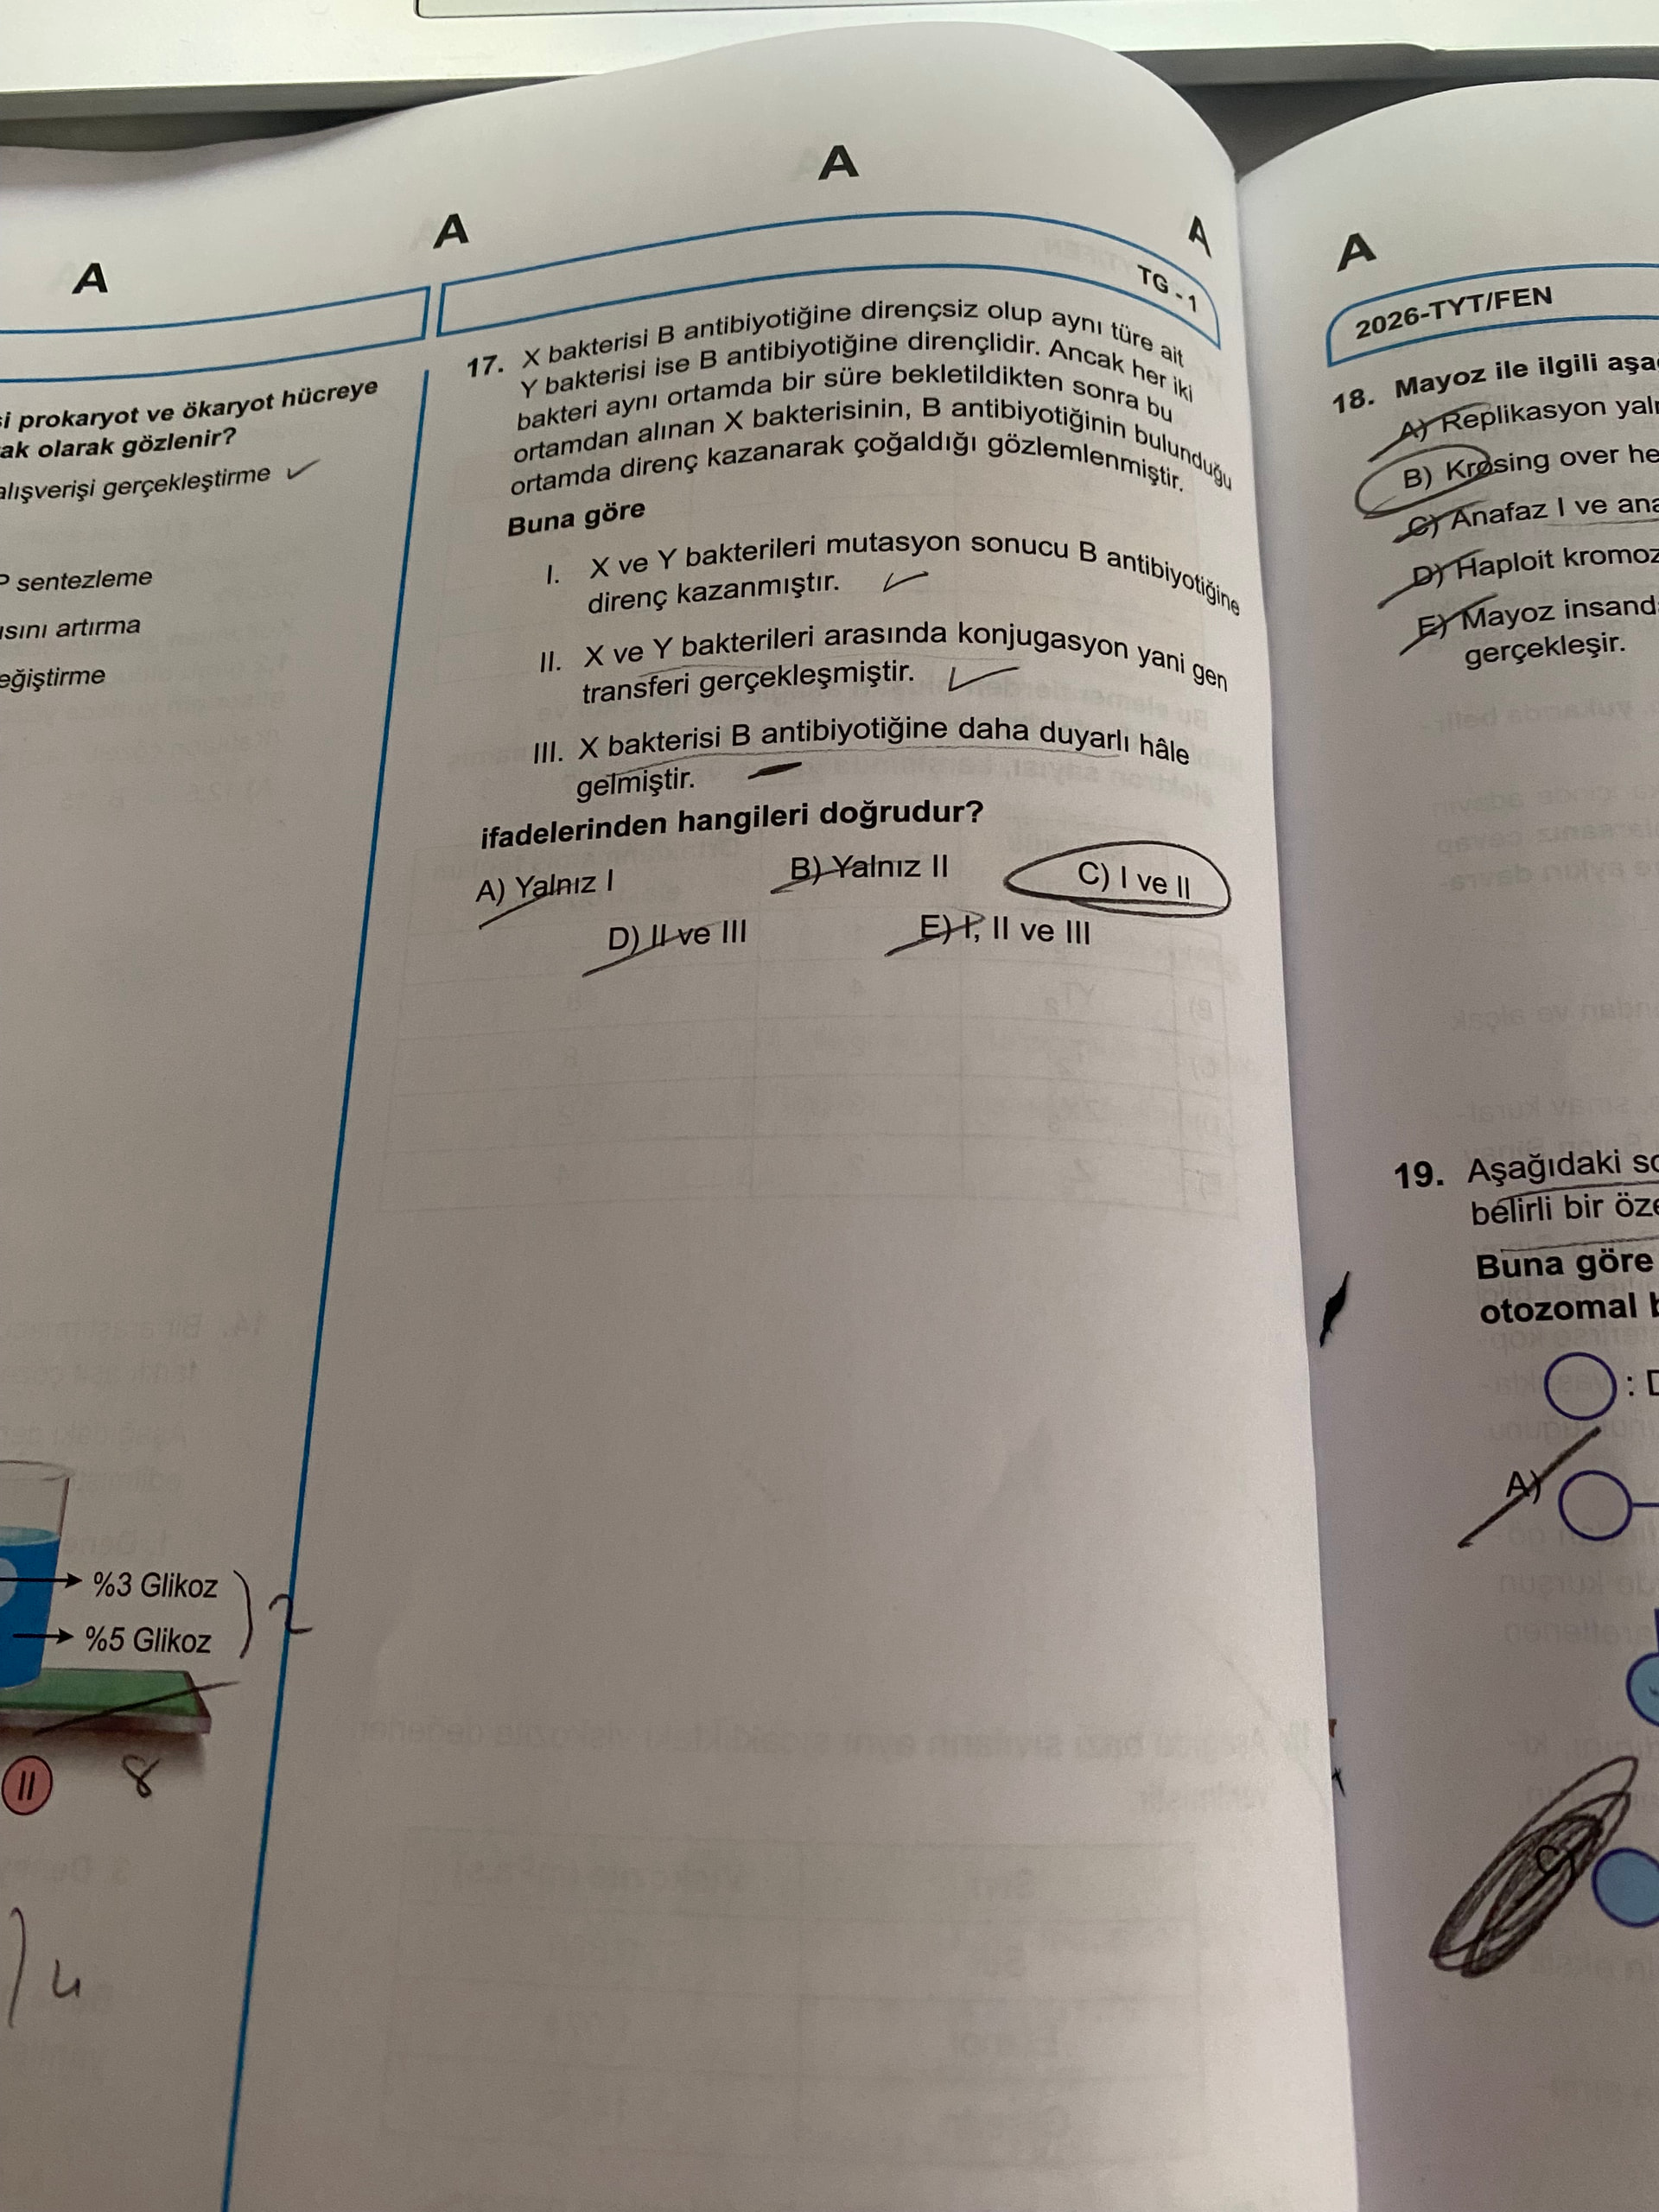 A
A
A
A
si prokaryot ve ökaryot hücreye
ak olarak gözlenir?
alışverişi gerçekleştirme
P sentezleme
ısını artırma
eğiştirme
%3 Glikoz
%5 Glikoz
2
II
8
4
TG - 1
17. X bakterisi B antibiyotiğine dirençsiz olup aynı türe ait
Y bakterisi ise B antibiyotiğine dirençlidir. Ancak her iki
bakteri aynı ortamda bir süre bekletildikten sonra bu
ortamdan alınan X bakterisinin, B antibiyotiğinin bulunduğu
ortamda direnç kazanarak çoğaldığı gözlemlenmiştir.
Buna göre
I. X ve Y bakterileri mutasyon sonucu B antibiyotiğine
direnç kazanmıştır.
II. X ve Y bakterileri arasında konjugasyon yani gen
transferi gerçekleşmiştir.
III. X bakterisi B antibiyotiğine daha duyarlı hâle
gelmiştir.
ifadelerinden hangileri doğrudur?
A) Yalnız I
B) Yalnız II
C) I ve II
D) II ve III
E) I, II ve III
A
2026-TYT/FEN
18. Mayoz ile ilgili aşa
A) Replikasyon yaln
B) Krosing over he
C) Anafaz I ve ana
D) Haploit kromoz
E) Mayoz insand
gerçekleşir.
19. Aşağıdaki so
belirli bir öze
Buna göre
otozomal b
: D
A)